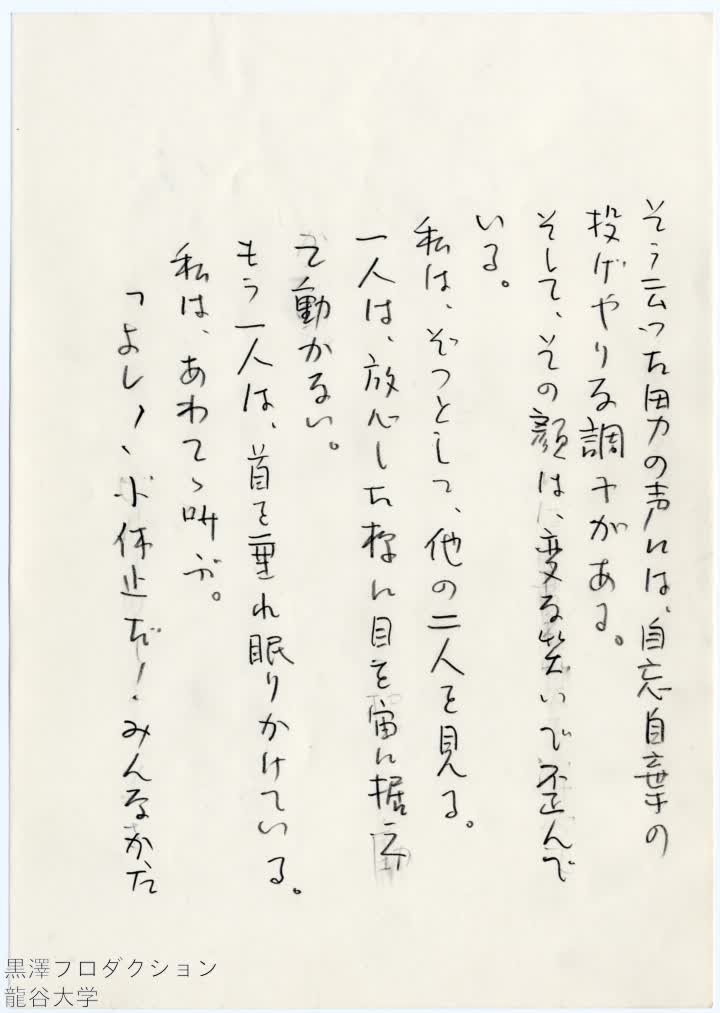 そう云った男の声には、自忘自棄の
投げやりな調子がある。
そして、その顔は、変な笑いで歪んで
いる。
私は、ぞっとして、他の二人を見る。
一人は、放心した様に目を宙に据え
て動かない。
もう一人は、首を垂れ眠りかけている。
私は、あわてゝ叫ぶ。
「よし！、小休止だ！みんなかた
黒澤プロダクション
龍谷大学